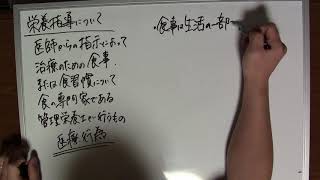 栄養指導について
医師からの指示によって
治療のための食事.
または食習慣について
食の専門家である
管理栄養士が行うもの
医療行為
・食事は生活の一部